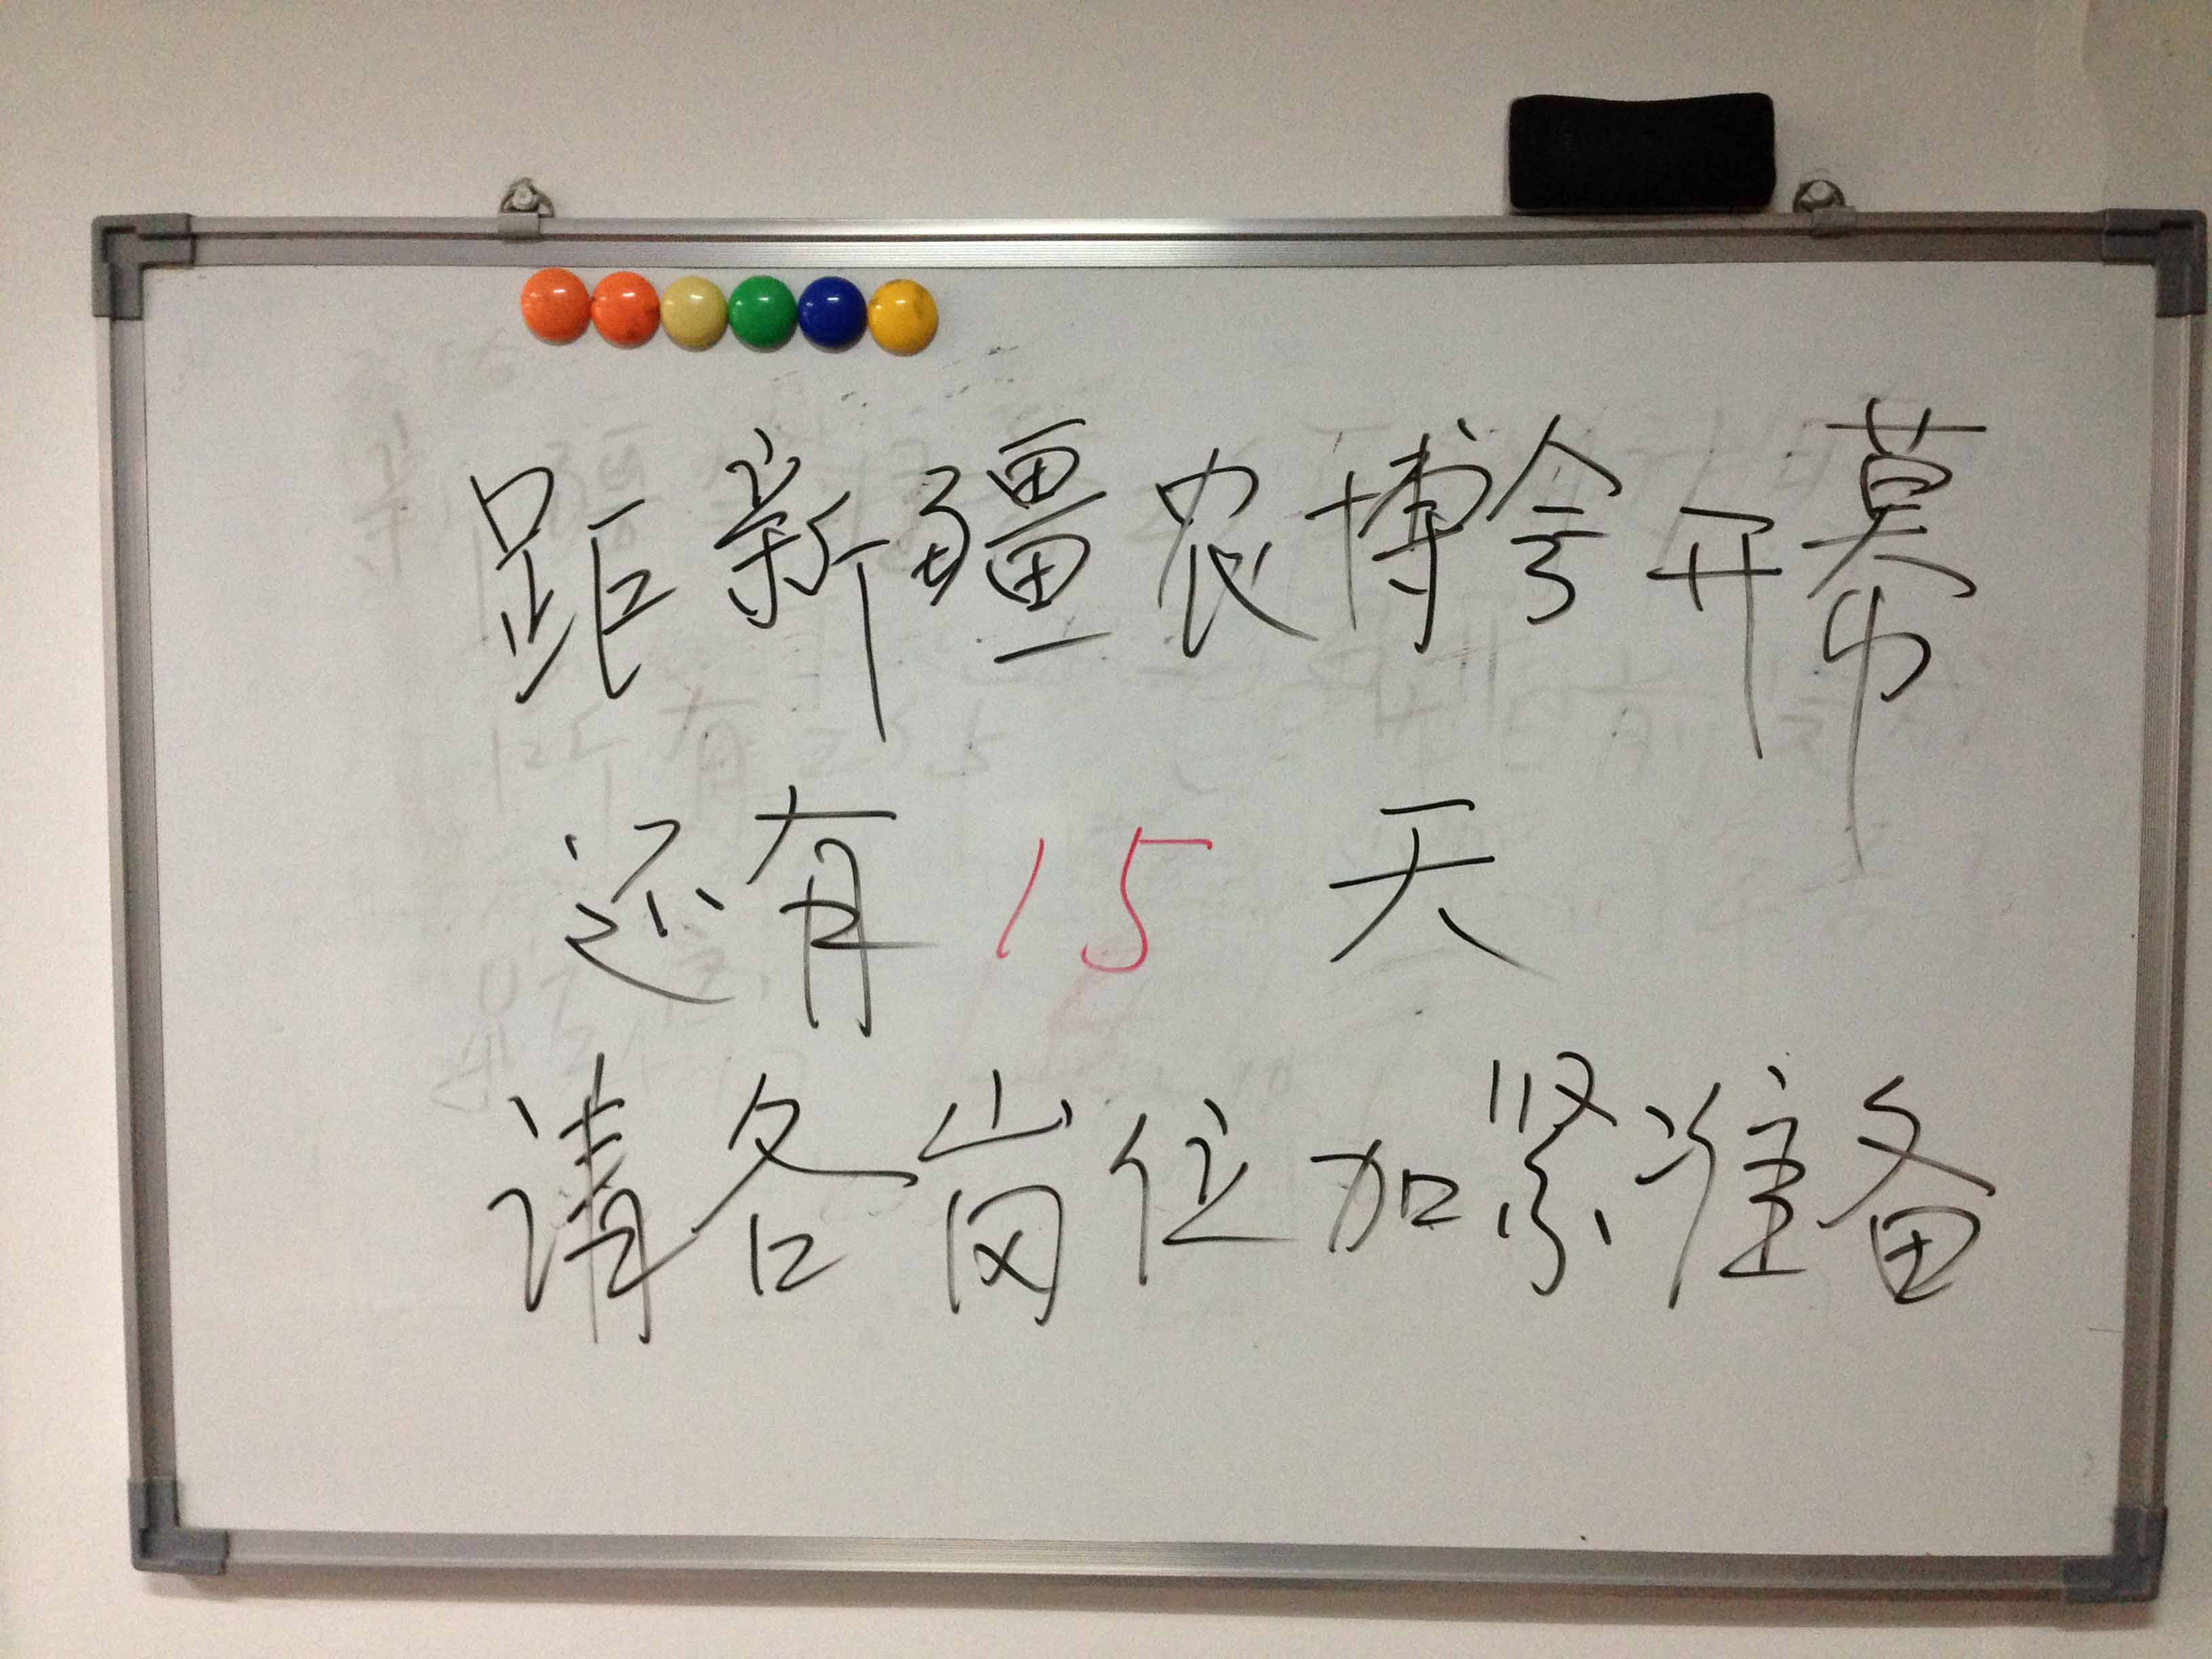 距新疆农博会开幕
还有 15 天
请各岗位加紧准备